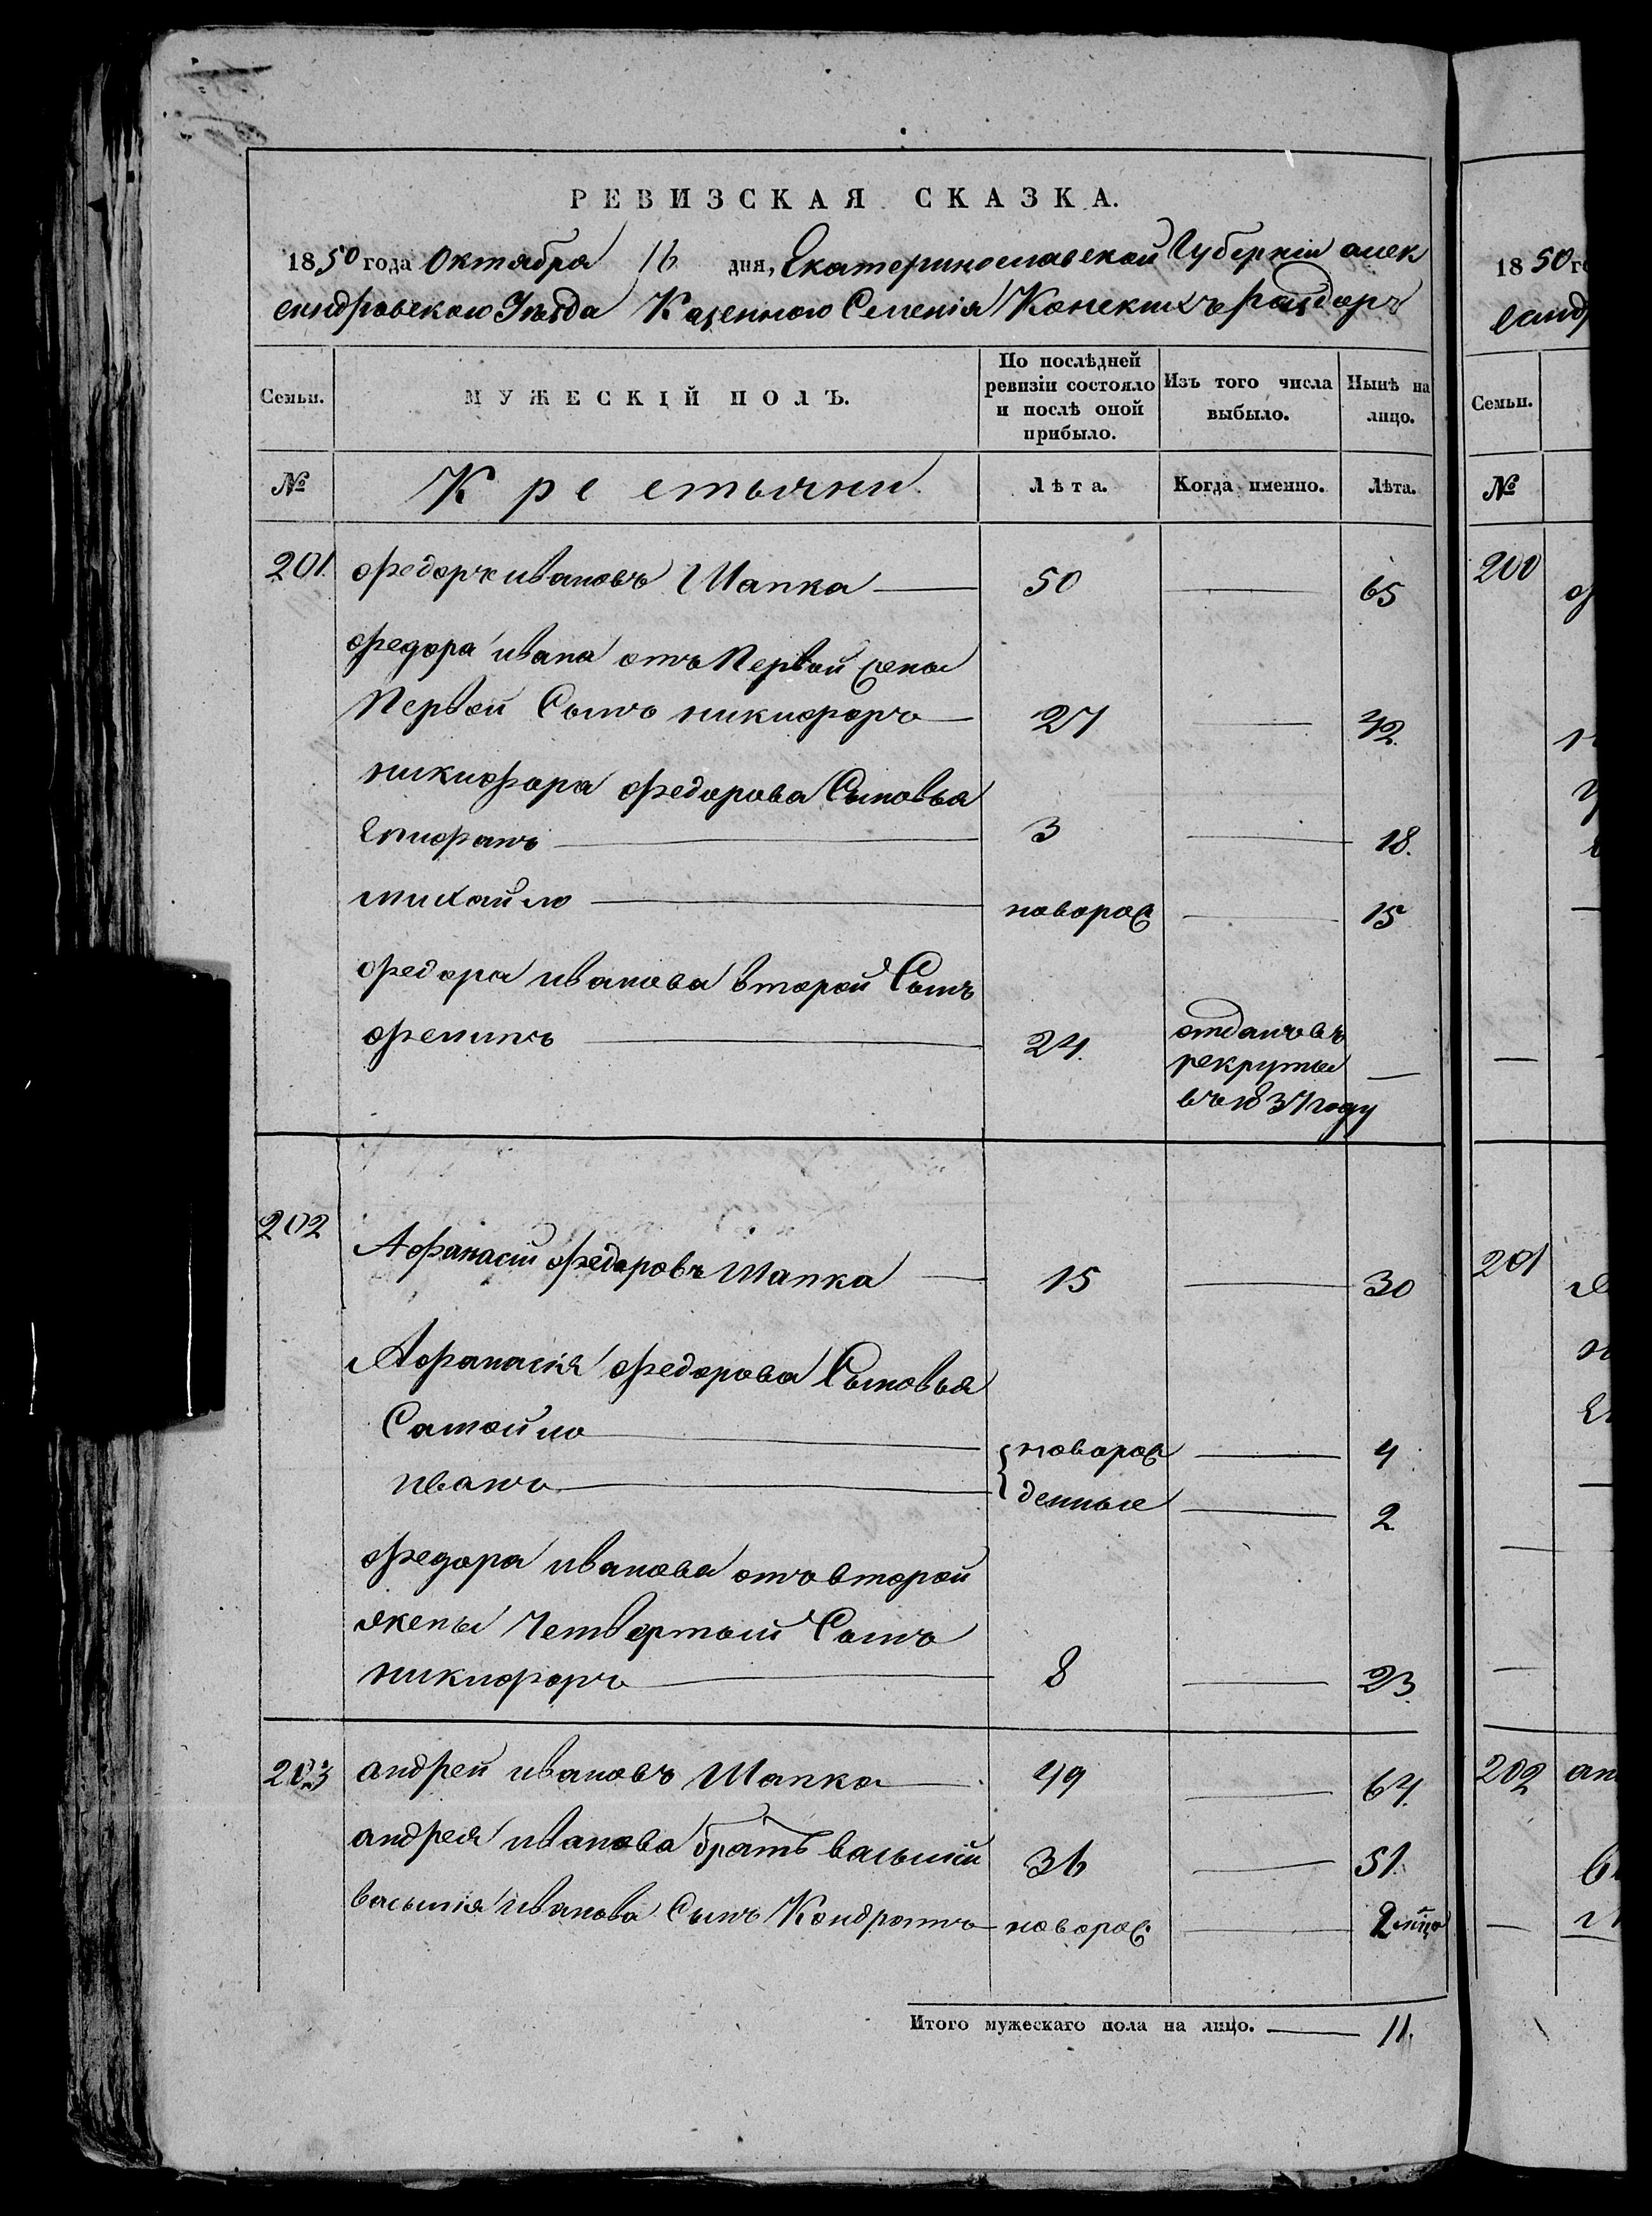 РЕВИЗСКАЯ СКАЗКА.
1850 года Октября 16 дня, Екатеринославской Губерніи алек
сандровского Уѣзда Казенного Селенія Конскихъ Раздоръ
Семьи. МУЖЕСКІЙ ПОЛЪ. По послѣдней ревизіи состояло и послѣ оной прибыло. Изъ того числа выбыло. Нынѣ на лицо.
№ Крестьяни Лѣта. Когда именно. Лѣта.
201. федоръ ивановъ Шапка 50 65
федора ивана отъ Первой жены
Первой Сынъ никифоръ 27 42.
никифора федорова Сыновья
Епифанъ 3 18.
михайло новорож 15
федора иванова второй Сынъ
филипъ 24. отданъ въ
рекруты
въ 1837 году
202
Афанасій федоровъ Шапка 15 30
Афанасія федорова Сыновья
Самойло новорож 4
иванъ денные 2
федора иванова отъ второй
жены Четвертый Сынъ
никифоръ 8 23.
203 андрей ивановъ Шапка 49 64.
андрея иванова братъ василій 36 51.
василія иванова Сынъ Кондратъ новорож 2
Итого мужескаго пола на лицо. 11.
1850 го
санд
Семьи.
№
200
201
202 ан